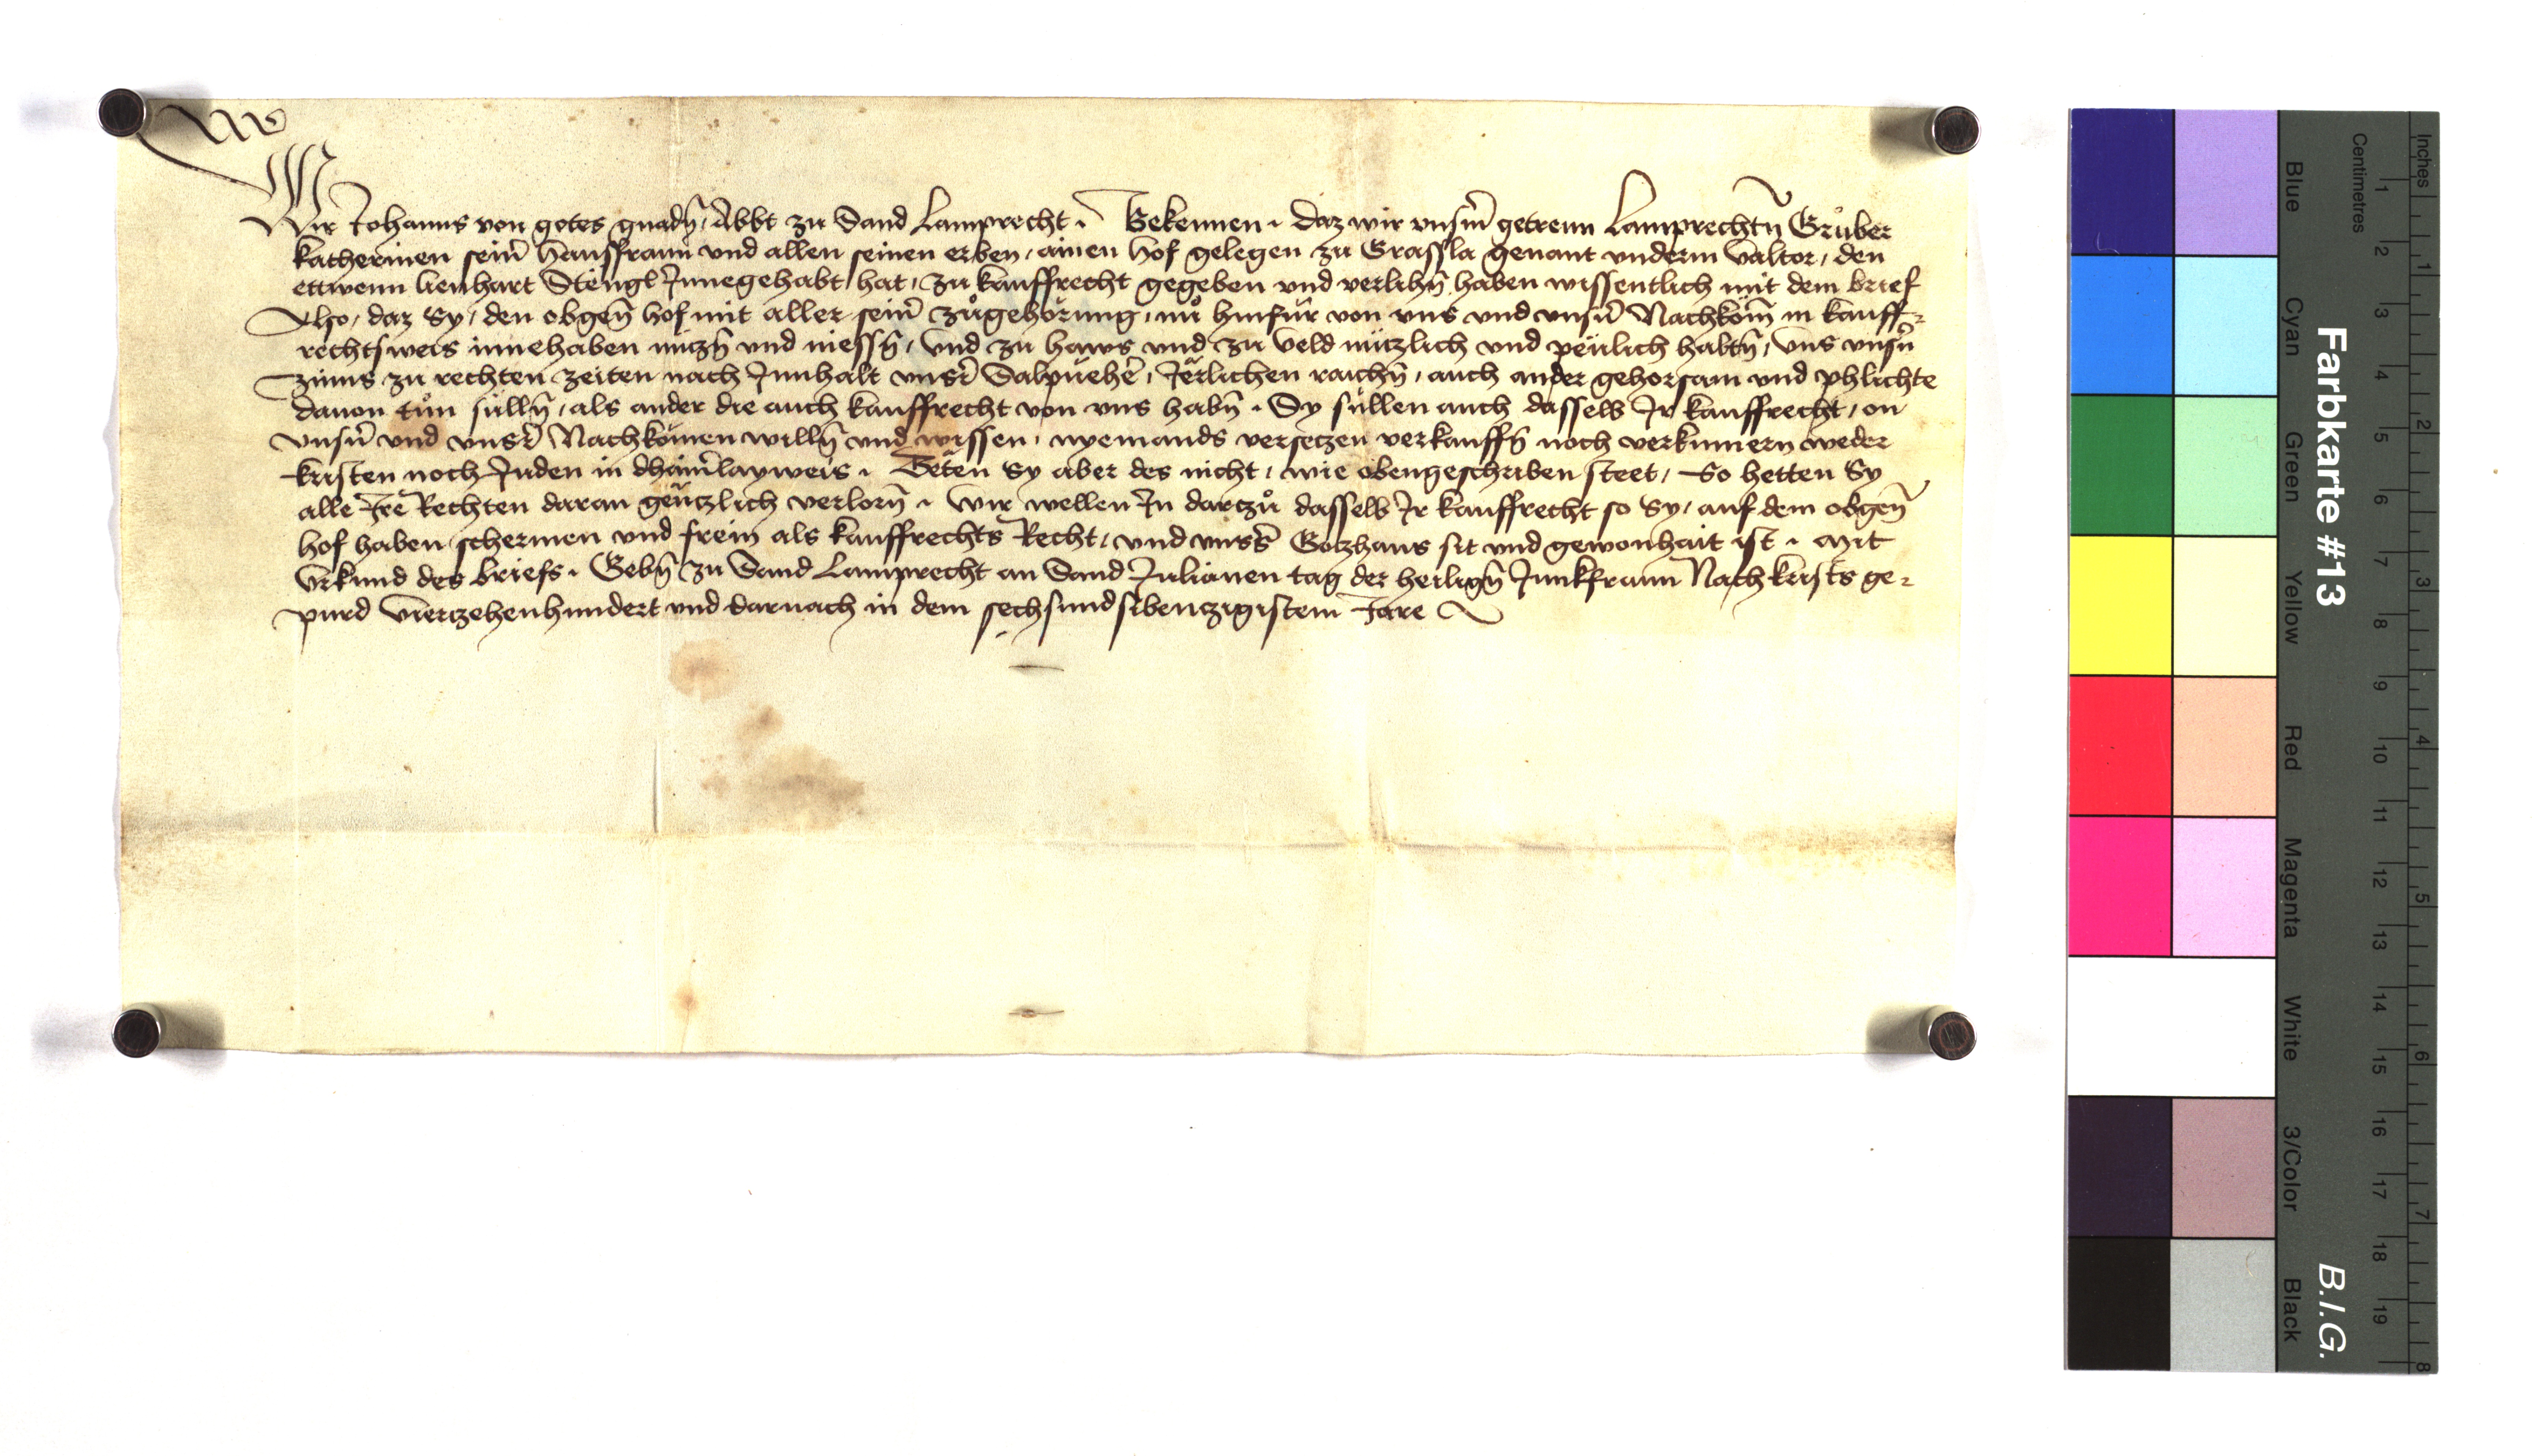 Wir Johanns von gotes gnadn̄ / Abbt zu Sand Lamprecht · Bekennen · daz wir vnserm̄ getrewn Lamprechtn̄ Grůber
Katherinen sein̄ hausfrawn vnd allen seinen erben / ainen hof gelegen zu Grassla genant vnderm valtor / den
ettwenn lienhart Stengl Innegehabt hat / zu kauffrecht gegeben vnd verlihn̄ haben wissentlich mit dem brief
Also / daz Sy / den obgen̄ hof mit aller sein̄ zůgehörung / nů hinfür von vns vnd vnsern̄ Nachköm̄ in kauff-
rechtsweis innehaben nuczn̄ vnd niessn̄ / vnd zu haws vnd zu veld nützlich vnd peulich haltn̄ / vns vnsern̄
zinns zu rechten zeiten nach Innhalt vnsr̄ Salpuehē / Jerlichen raichn̄ / auch ander gehorsam vnd phlichte
dauon tůn sülln̄ / als ander die auch kauffrecht von vns habn̄ · Sy süllen auch dasselb Ir kauffrecht / on
vnsern̄ vnd vnsr̄ Nachkömen willn̄ vnd wissen / nyemands versetzen verkauffn̄ noch verkumern weder
kristen noch Juden in dhainr̄layweis · Teten Sy aber des nicht / wie obengeschriben steet / So hetten Sy
alle Ire Rechten daran genczlich verlorn̄ · Wir wellen In darczů dasselb Ir kauffrecht so Sy / auf dem obgen̄
hof haben schermen vnd frein als kauffrechts Recht / vnd vnsrs̄ Goczhaus sit vnd gewonhait ist · Mit
vrkund des briefs · Gebn̄ zu Sand Lamprecht an Sand Julianen tag der heilign̄ Junkfrawn Nach krists ge-
purd vierzehenhundert vnd darnach in dem sechsundsibenczigistem Jare
Farbkarte #13
B.I.G.
Centimetres
Inches
Blue
Cyan
Green
Yellow
Red
Magenta
White
3/Color
Black
1 2 3 4 5 6 7 8 9 10 11 12 13 14 15 16 17 18 19
1 2 3 4 5 6 7 8